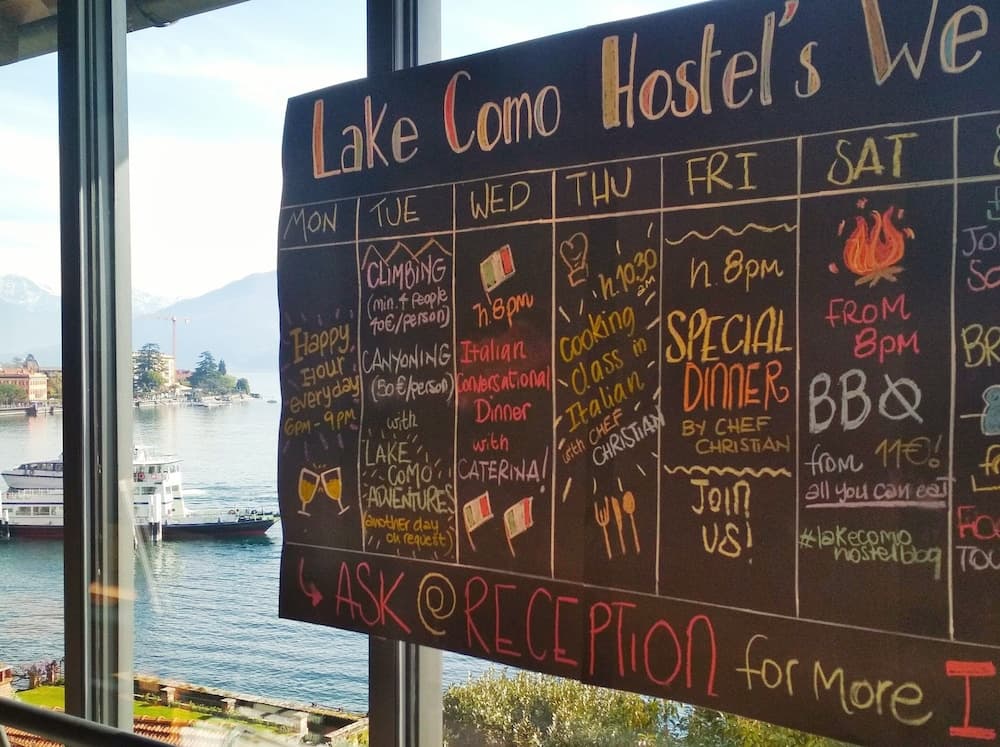 Lake Como Hostel's We
MON
TUE
WED
THU
FRI
SAT
Happy
Hour
everyday
6PM - 9PM
CLIMBING
(min. 4 people
40€/person)
CANYONING
(50€/person)
with
LAKE
COMO
ADVENTURES
(another day
on request)
h 8pm
Italian
Conversational
Dinner
with
CATERINA!
h. 10.30
am
Cooking
Class in
Italian
with CHEF
CHRISTIAN
h. 8pm
SPECIAL
DINNER
BY CHEF
CHRISTIAN
JOIN
US!
FROM
8pm
BBQ
from 11€!
all you can eat
#lakecomo
hostelbbq
Jo
So
BR
TOU
ASK @ RECEPTION for more I